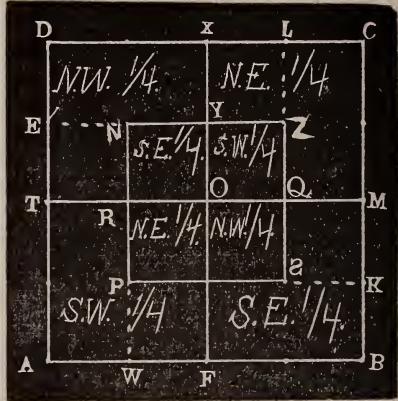 D X L C
N.W. 1/4 N.E. 1/4
E N Y Z
S.E. 1/4 S.W. 1/4
T R O Q M
N.E. 1/4 N.W. 1/4
P S K
S.W. 1/4 S.E. 1/4
A W F B